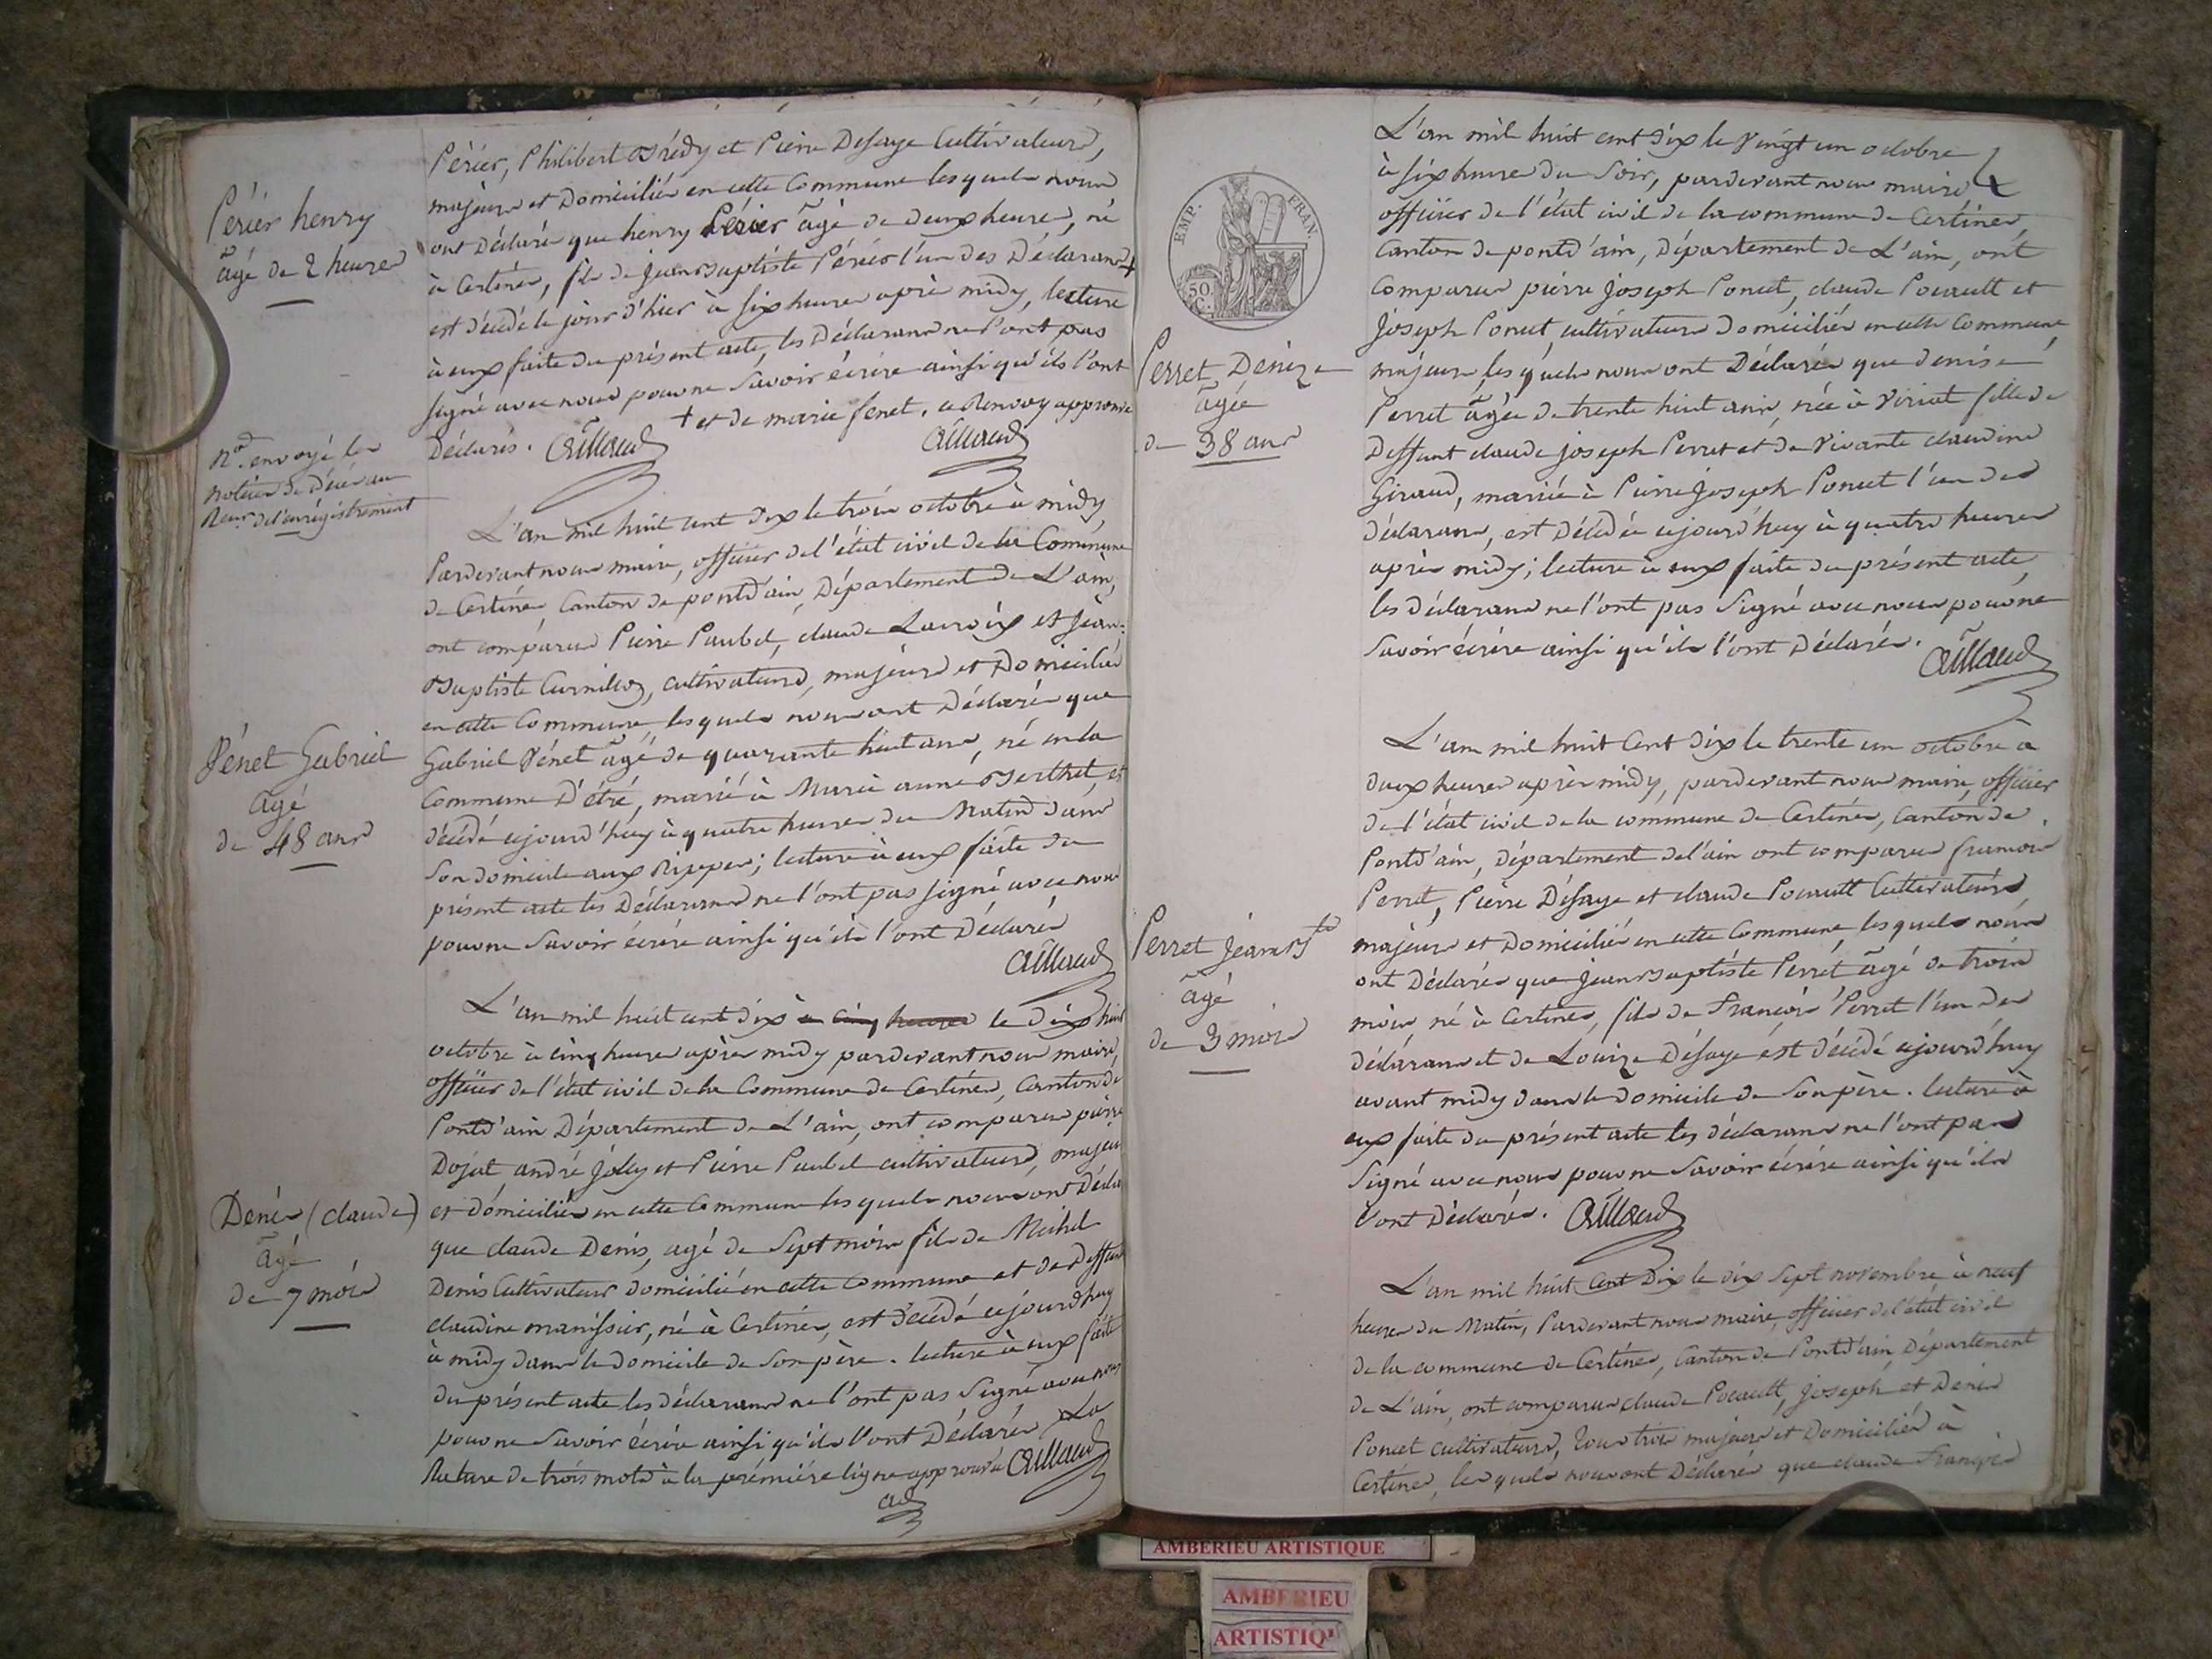 Périer, Philibert Brédy et Pierre Desaye Cultivateurs,
majeurs et Domiciliés en cette Commune lesquels nous
ont Déclarés que henry Périer âgé de deux heures, né
à Certines, fils de jean Baptiste Périer l'un des Déclarans +
est décédé le jour d'hier à six heures après midy, lecture
à eux faite du présent acte, les Déclarans ne l'ont pas
signé avec nous pour ne savoir écrire ainsi qu'ils l'ont
+ et de marie fenet, ce Renvoy approuvé
Déclarés.
Périer henry
âgé de 2 heures
envoyé les
notices de Décès au
Reur de l'enrégistrement
L'an mil huit cent dix le trois octobre à midy
Pardevant nous maire, officier de l'état civil de la Commune
de Certines, Canton de pontd'ain, Département de L'ain,
ont comparus Pierre Paubel, claude Lacroix et jean
Baptiste Curnilloz, cultivateurs, majeurs et Domiciliés
en cette Commune, lesquels nous ont Déclarés que
Gabriel Vénet âgé de quarante huit ans, né en la
Commune D'étré, marié à Marie anne Berthet, est
décédé cejourd'huy à quatre heures du Matin dans
son domicile aux Rippes; lecture à eux faite du
présent acte les Déclarans ne l'ont pas signé avec nous
pour ne savoir écrire ainsi qu'ils l'ont Déclarés
Vénet Gabriel
âgé
de 48 ans
L'an mil huit cent dix à cinq heures le dix huit
octobre à cinq heures après midy pardevant nous maire,
officier de l'état civil de la Commune de Certines, Canton de
Pontd'ain Département de L'ain, ont comparus pierre
Dojat, andré jolly et Pierre Paubel cultivateurs, majeurs
et domiciliés en cette Commune lesquels nous ont Décla
que claude Denis, agé de Sept mois fils de Michel
Denis Cultivateur domicilié en cette Commune et de Deffunte
claudine manissier, né à Certines, est Décédé cejourd'huy
à midy dans le domicile de son père. lecture à eux faite
du présent acte les déclarans ne l'ont pas Signé avec nous
pour ne Savoir écrire ainsi qu'ils l'ont Déclarés La
Rature de trois mots à la première ligne approuvée
Denis (claude)
âgé
de 7 mois
EMP. FRAN.
50 C.
L'an mil huit cent dix le vingt un octobre
à six heures du Soir, pardevant nous maire
officier de l'état civil de la commune de Certines,
Canton de pontd'ain, Département de L'ain, ont
Comparus pierre Joseph Poncet, claude Pocault et
Joseph Poncet, cultivateurs domiciliés en cette Commune,
majeurs, lesquels nous ont Déclarés que denise
Perret âgée de trente huit ans, née à Viriat fille de
Deffunt claude joseph Perret et de Vivante claudine
Giraud, mariée à Pierre Joseph Poncet l'un des
déclarans, est Décédée cejourd'huy à quatre heures
après midy; lecture à eux faite du présent acte,
les déclarans ne l'ont pas Signé avec nous pour ne
Savoir écrire ainsi qu'ils l'ont Déclarés.
Perret Dénize
âgée
de 38 ans
L'an mil huit Cent dix le trente un octobre à
deux heures après midy, pardevant nous maire, officier
de l'état civil de la commune de Certines, Canton de
Pontd'ain, Département de l'ain ont comparus françois
Perret, Pierre Désaye et claude Pocault Cultivateurs
majeurs et Domiciliés en cette Commune, lesquels nous
ont Déclarés que jean Baptiste Perret âgé de trois
mois né à Certines, fils de François Perret l'un des
déclarans et de Louize Désaye est décédé cejourd'huy
avant midy dans le domicile de Son père. lecture à
eux faite du présent acte les déclarans ne l'ont pas
Signé avec nous pour ne Savoir écrire ainsi qu'ils
l'ont Déclarés.
Perret jean Bte
âgé
de 3 mois
L'an mil huit Cent Dix le dix Sept novembre à neuf
heures du Matin, Pardevant nous maire, officier de l'état civil
de la commune de Certines, Canton de Pontd'ain, Département
de L'ain, ont comparus claude Pocault, Joseph et Denis
Poncet cultivateurs, tous trois majeurs et Domiciliés à
Certines, lesquels nous ont Déclarés que claude François
AMBERIEU ARTISTIQUE
AMBERIEU
ARTISTIQU